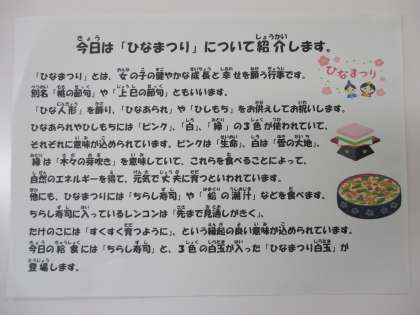 今日は「ひなまつり」について紹介します。
「ひなまつり」とは、女の子の健やかな成長と幸せを願う行事です。
別名「桃の節句」や「上巳の節句」ともいいます。
「ひな人形」を飾り、「ひなあられ」や「ひしもち」をお供えしてお祝いします。
ひなあられやひしもちには「ピンク」、「白」、「緑」の3色が使われていて、
それぞれに意味が込められています。ピンクは「生命」、白は「雪の大地」、
緑は「木々の芽吹き」を意味していて、これらを食べることによって、
自然のエネルギーを得て、元気で丈夫に育つといわれています。
他にも、ひなまつりには「ちらし寿司」や「蛤の潮汁」などを食べます。
ちらし寿司に入っているレンコンは「先まで見通しがきく」、
たけのこには「すくすく育つように」、という縁起の良い意味が込められています。
今日の給食には「ちらし寿司」と、3色の白玉が入った「ひなまつり白玉」が
登場します。
ひなまつり